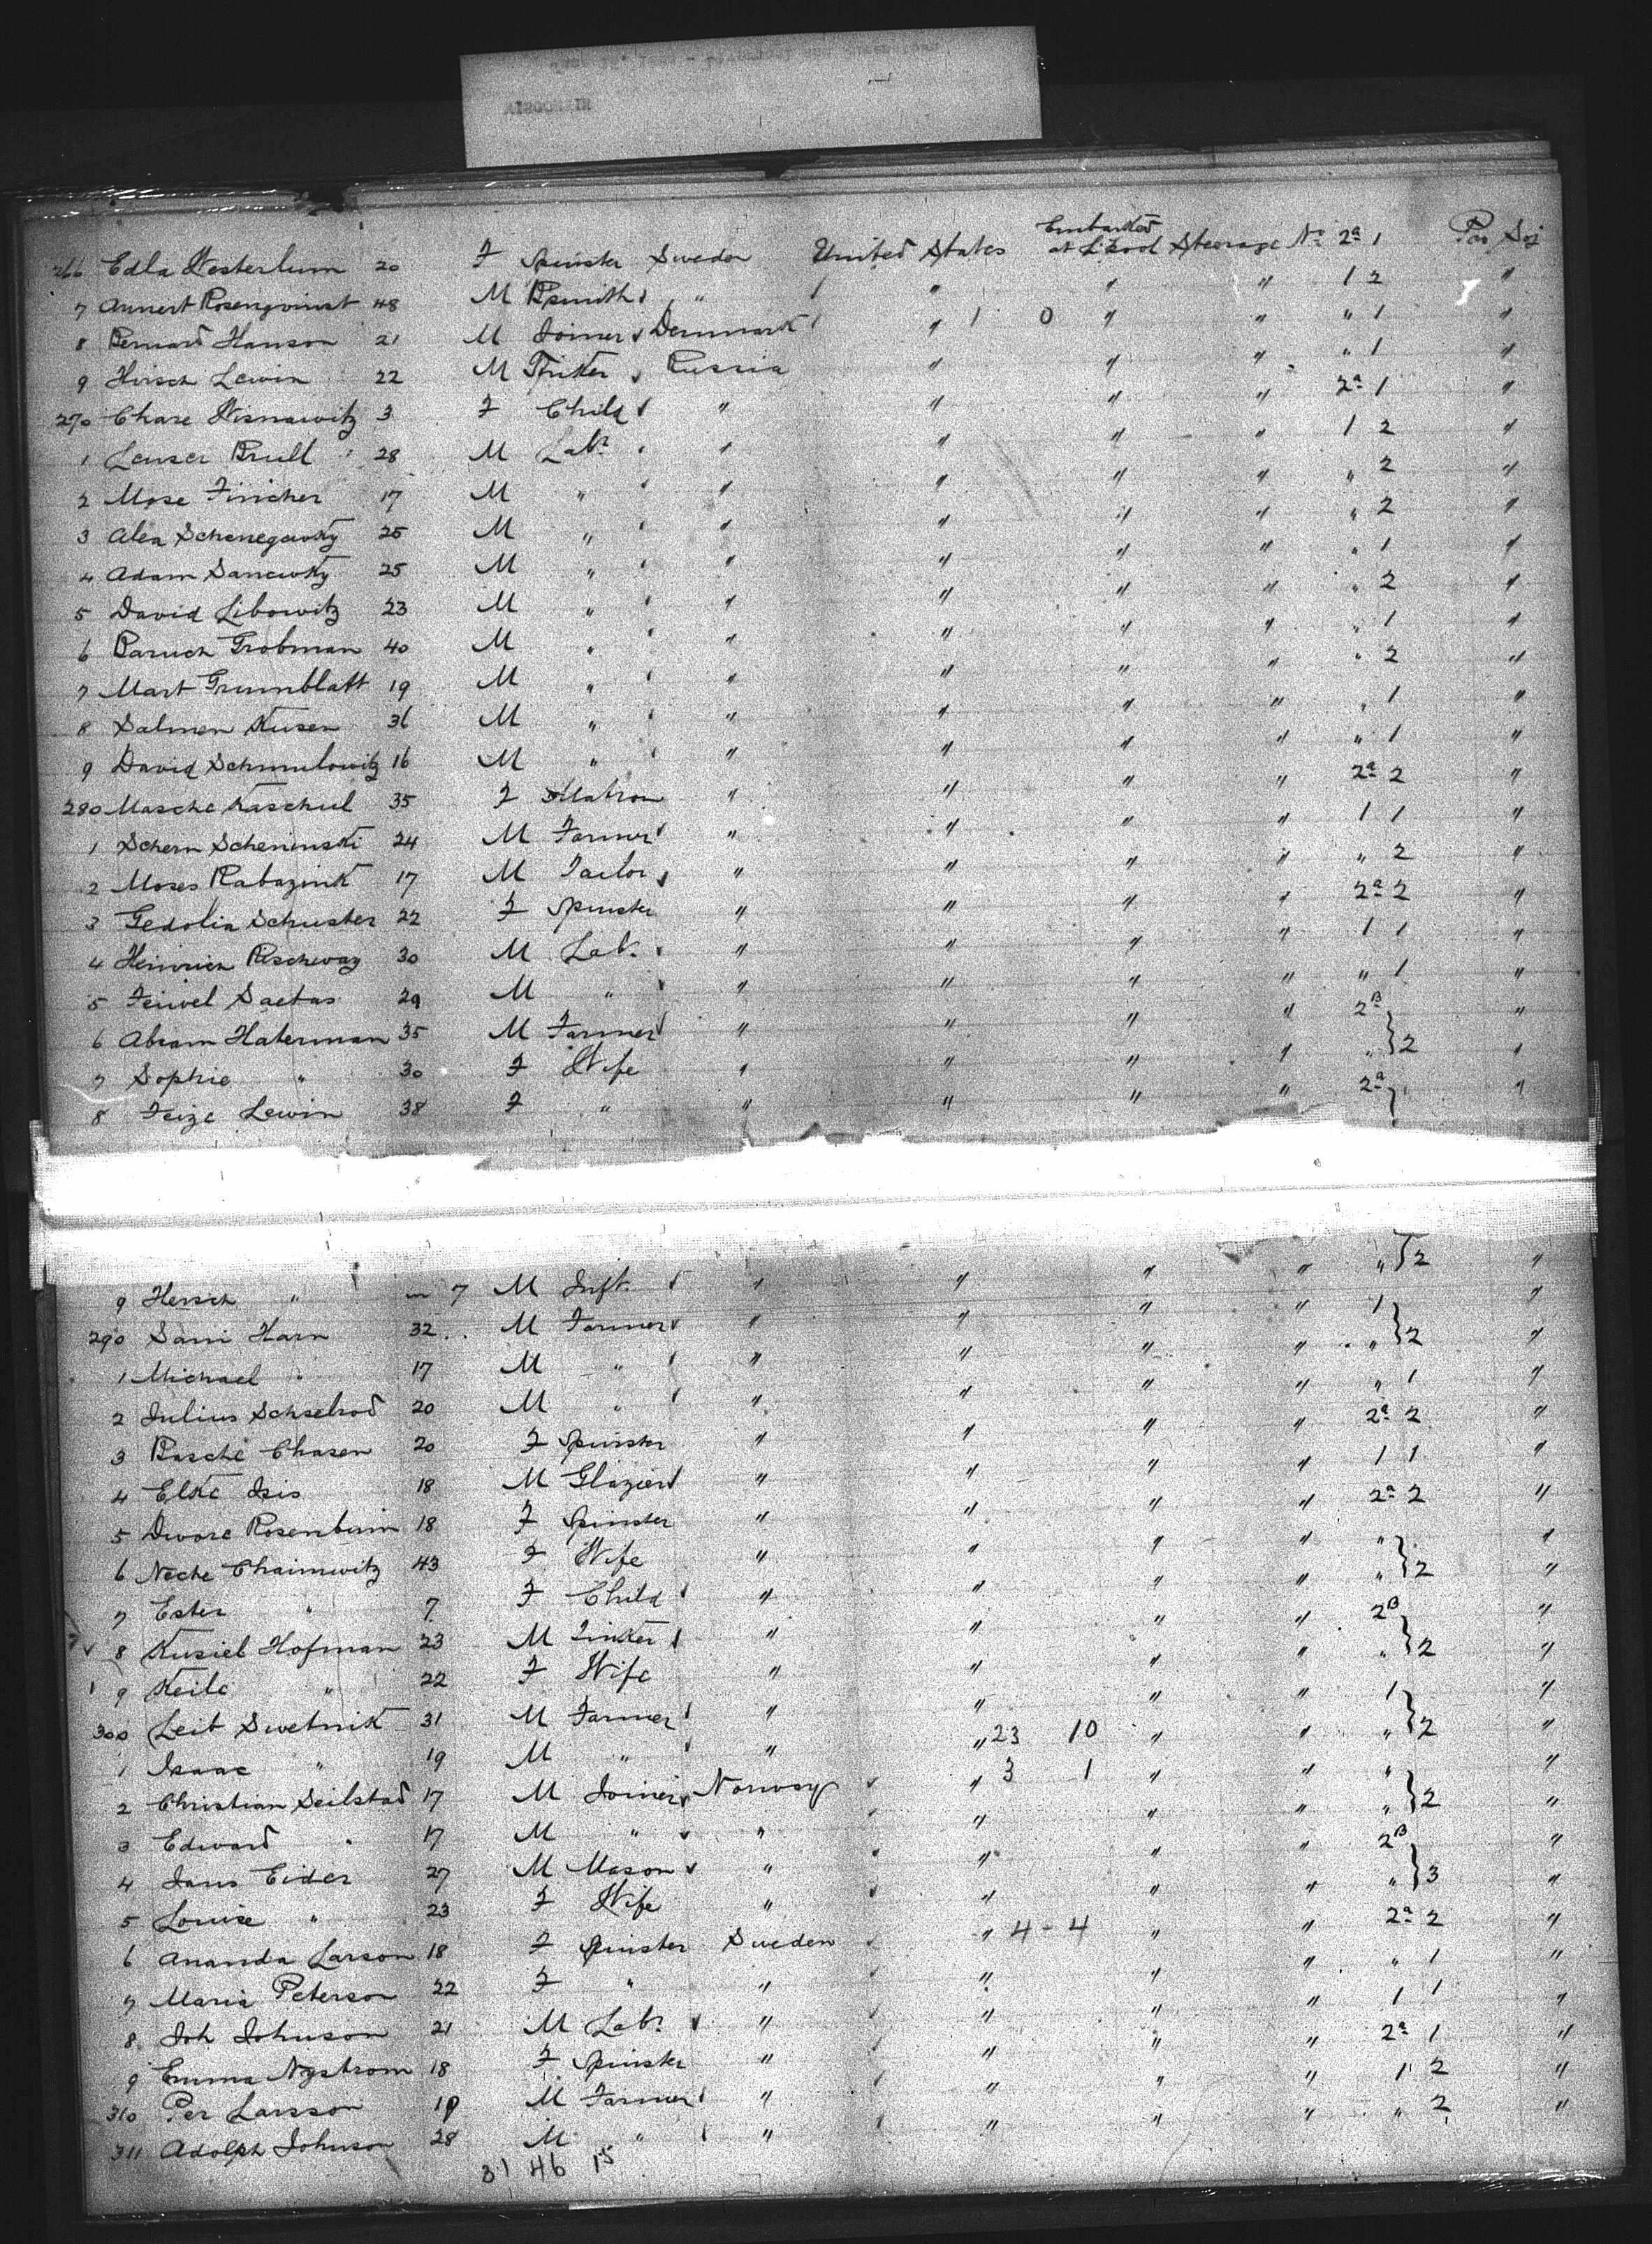 266 Edla Westerlum 20 F Spinster Sweden United States Embarked at L'pool Steerage No 2a 1 Pro Soj
7 Annert Rosenqvinst 48 M Bsmith " " " " 1 2 "
8 Bernard Hanson 21 M Joiner Denmark " 1 0 " " " 1 "
9 Hirsch Lewin 22 M Tinker Russia " " " " 1 "
270 Chase Wisnawitz 3 F Child " " " " 2a 1 "
1 Leuser Brull 28 M Labr " " " " 1 2 "
2 Mose Fincher 17 M " " " " " " 2 "
3 Alex Schenegowsky 25 M " " " " " " 2 "
4 Adam Sanewsky 25 M " " " " " " 1 "
5 David Libowitz 23 M " " " " " " 2 "
6 Baruch Grobman 40 M " " " " " " 1 "
7 Mart Grumblatt 19 M " " " " " " 2 "
8 Salmen Kusen 36 M " " " " " " 1 "
9 David Schmulowitz 16 M " " " " " " 1 "
280 Masche Kaschul 35 F Matron " " " " 2a 2 "
1 Schern Scheninski 24 M Farmer " " " " 1 1 "
2 Moses Rabazink 17 M Tailor " " " " " 2 "
3 Gedolia Schuster 22 F Spinster " " " " 2a 2 "
4 Heinrich 30 M Labr " " " " 1 1 "
5 Feiwel Sactas 29 M " " " " " " 1 "
6 Abram Haterman 35 M Farmer " " " " 2B "
7 Sophie " 30 F Wife " " " " " } 2 "
8 Feize Lewin 38 F " " " " " 2a "
9 Hersch " m 7 M Inft. " " " " " } 2 "
290 Sami Harn 32 M Farmer " " " " 1 "
1 Michael " 17 M " " " " " " } 2 "
2 Julius Schselrod 20 M " " " " " " 1 "
3 Basche Chasen 20 F Spinster " " " " 2a 2 "
4 Elke Isis 18 M Glazier " " " " 1 1 "
5 Dwore Rosenbum 18 F Spinster " " " " 2a 2 "
6 Neche Chaimwitz 43 F Wife " " " " " "
7 Ester " 7 F Child " " " " " } 2 "
8 Kusiel Hofman 23 M Tinker " " " " 2B "
9 Keile " 22 F Wife " " " " " } 2 "
300 Leib Swetnik 31 M Farmer " " " " 1 "
1 Isaac " 19 M " " " 23 10 " " " } 2 "
2 Christian Seilstad 17 M Joiner Norway " 3 1 " " " "
3 Edward " 17 M " " " " " " } 2 "
4 Jans Eider 27 M Mason " " " " 2B "
5 Louise " 23 F Wife " " " " " } 3 "
6 Ananda Larson 18 F Spinster Sweden " 4 - 4 " " 2a 2 "
7 Maria Peterson 22 F " " " " " " 1 "
8 Joh Johnson 21 M Labr " " " " 1 1 "
9 Emma Nystrom 18 F Spinster " " " " 2a 1 "
310 Per Larsson 19 M Farmer " " " " 1 2 "
311 Adolph Johnson 28 M " " " " " " 2 "
31 46 15